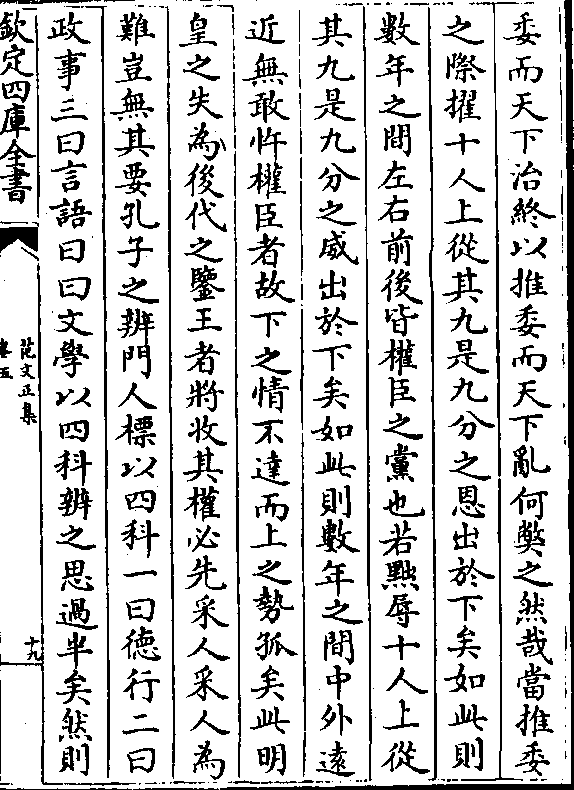 委而天下治終以推委而天下亂何弊之然哉當推委
之際擢十人上從其九是九分之恩出於下矣如此則
數年之間左右前後皆權臣之黨也若黜辱十人上從
其九是九分之威出於下矣如此則數年之間中外逺
近無敢忤權臣者故下之情不達而上之勢孤矣此明
皇之失為後代之鑒王者將收其權必先采人采人為
難豈無其要孔子之辨門人標以四科一曰徳行二曰
政事三曰言語曰曰文學以四科辨之思過半矣然則
欽定四庫全書
范文正集
卷五
十九